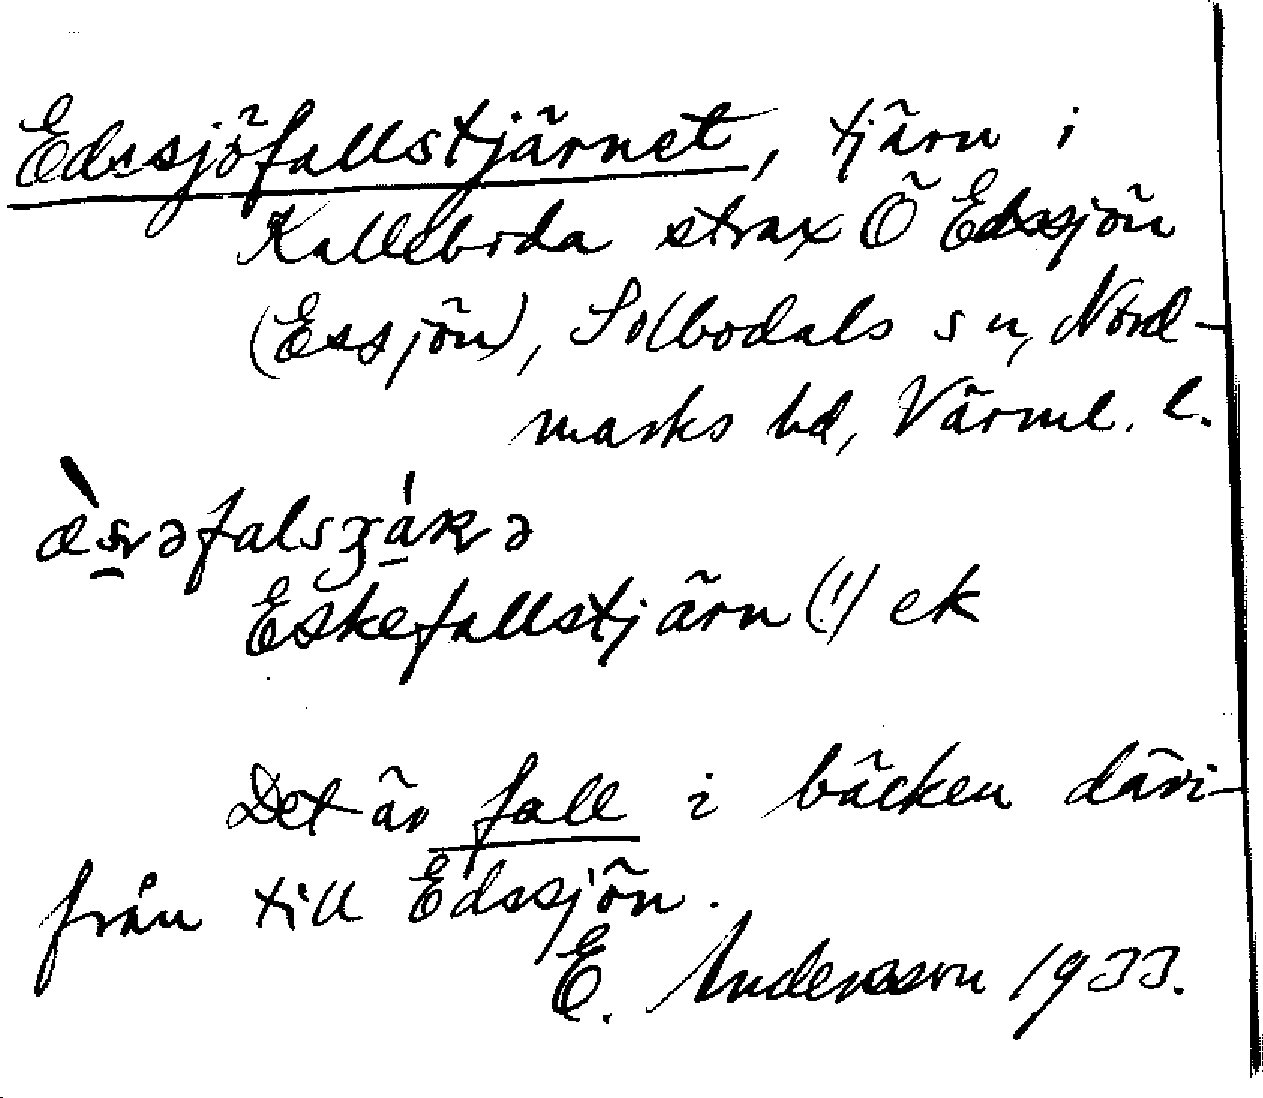 Edssjöfallstjärnet, tjärn i
Kalleboda strax Ö Edssjön
(Essjön), Silbodals sn, Nord-
marks hd, Värml. l.
Eskefallstjärn (!) ek
Det är fall i bäcken däri-
från till Edssjön.
E. Andersson 1933.